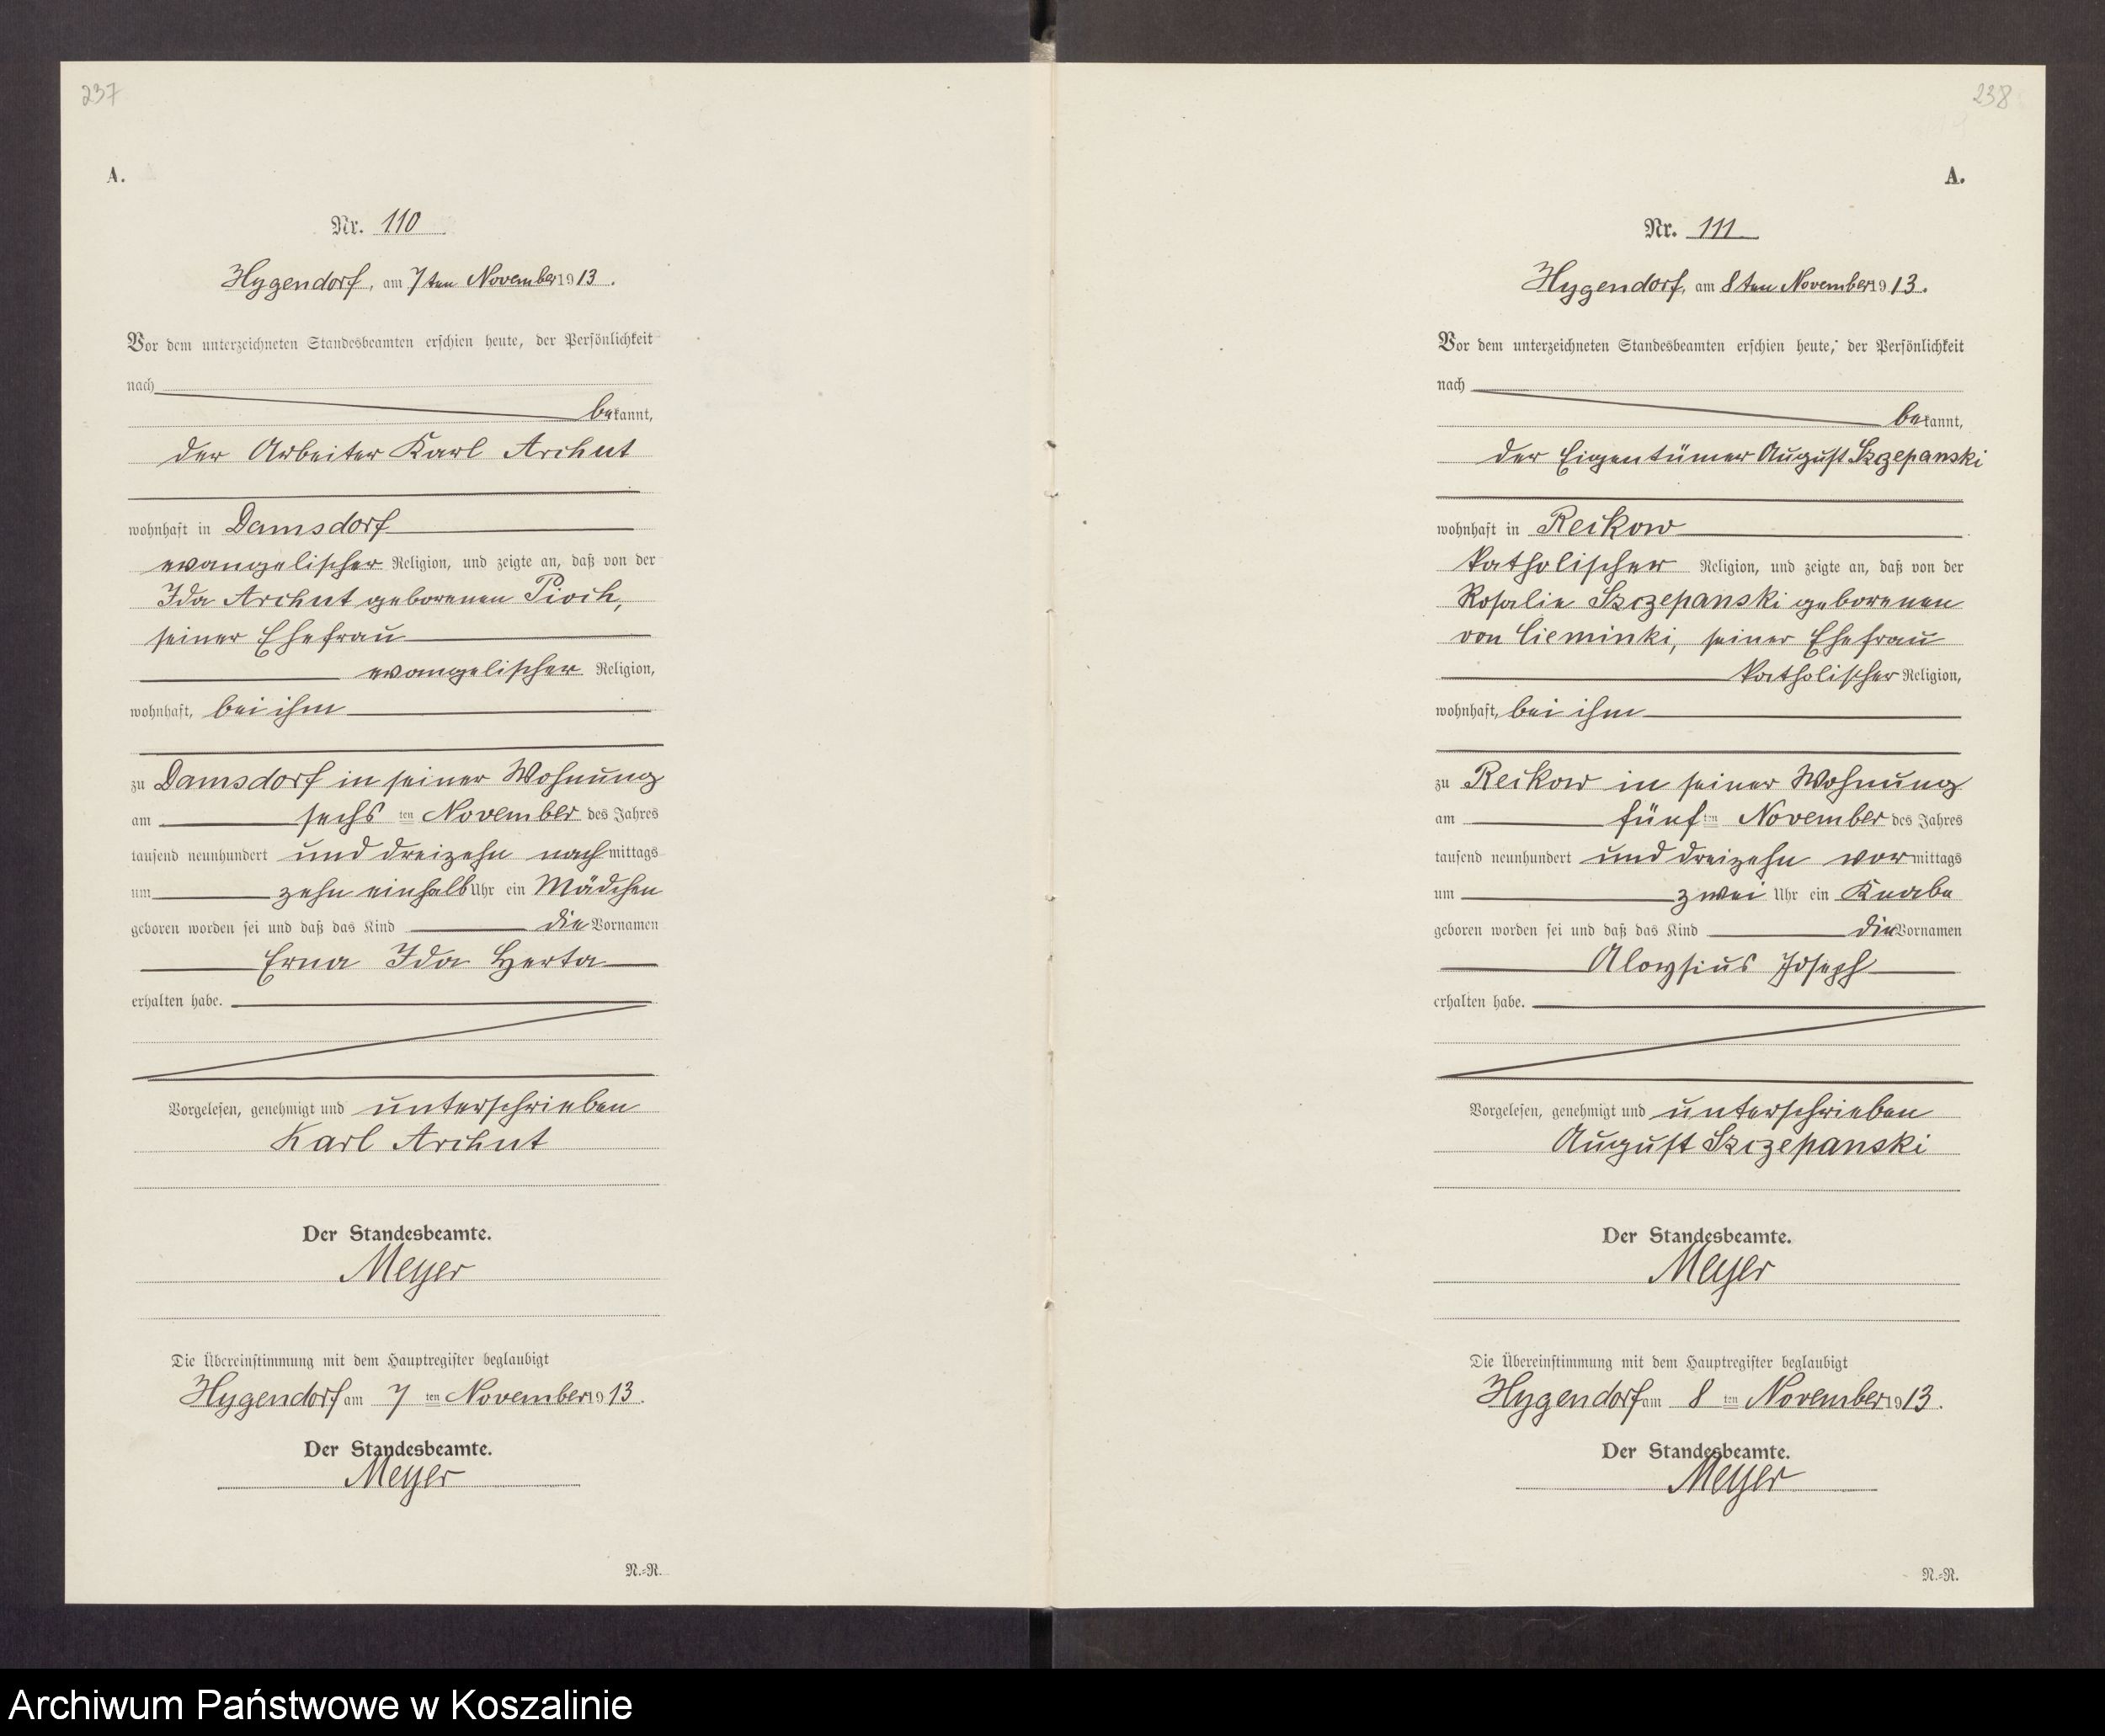 237
A.
Nr. 110
Hygendorf, am 7ten November 1913.
Vor dem unterzeichneten Standesbeamten erschien heute, der Persönlichkeit
nach
bekannt,
der Arbeiter Karl Archut
wohnhaft in Damsdorf
evangelischer Religion, und zeigte an, daß von der
Ida Archut geborenen Pioch,
seiner Ehefrau
evangelischer Religion,
wohnhaft, bei ihm
zu Damsdorf in seiner Wohnung
am sechs ten November des Jahres
tausend neunhundert und dreizehn nachmittags
um zehn einhalb Uhr ein Mädchen
geboren worden sei und daß das Kind die Vornamen
Erna Ida Herta
erhalten habe.
Vorgelesen, genehmigt und unterschrieben
Karl Archut
Der Standesbeamte.
Meyer
Die Übereinstimmung mit dem Hauptregister beglaubigt
Hygendorf am 7 ten November 1913.
Der Standesbeamte.
Meyer
N.=R.
238
A.
Nr. 111
Hygendorf, am 8ten November 1913.
Vor dem unterzeichneten Standesbeamten erschien heute, der Persönlichkeit
nach
bekannt,
der Eigentümer August Szczepanski
wohnhaft in Reikow
katholischer Religion, und zeigte an, daß von der
Rosalie Szczepanski geborenen
von Cieminki, seiner Ehefrau
katholischer Religion,
wohnhaft, bei ihm
zu Reikow in seiner Wohnung
am fünf ten November des Jahres
tausend neunhundert und dreizehn vormittags
um zwei Uhr ein Knabe
geboren worden sei und daß das Kind die Vornamen
Aloysius Joseph
erhalten habe.
Vorgelesen, genehmigt und unterschrieben
August Szczepanski
Der Standesbeamte.
Meyer
Die Übereinstimmung mit dem Hauptregister beglaubigt
Hygendorf am 8 ten November 1913.
Der Standesbeamte.
Meyer
N.=R.
Archiwum Państwowe w Koszalinie